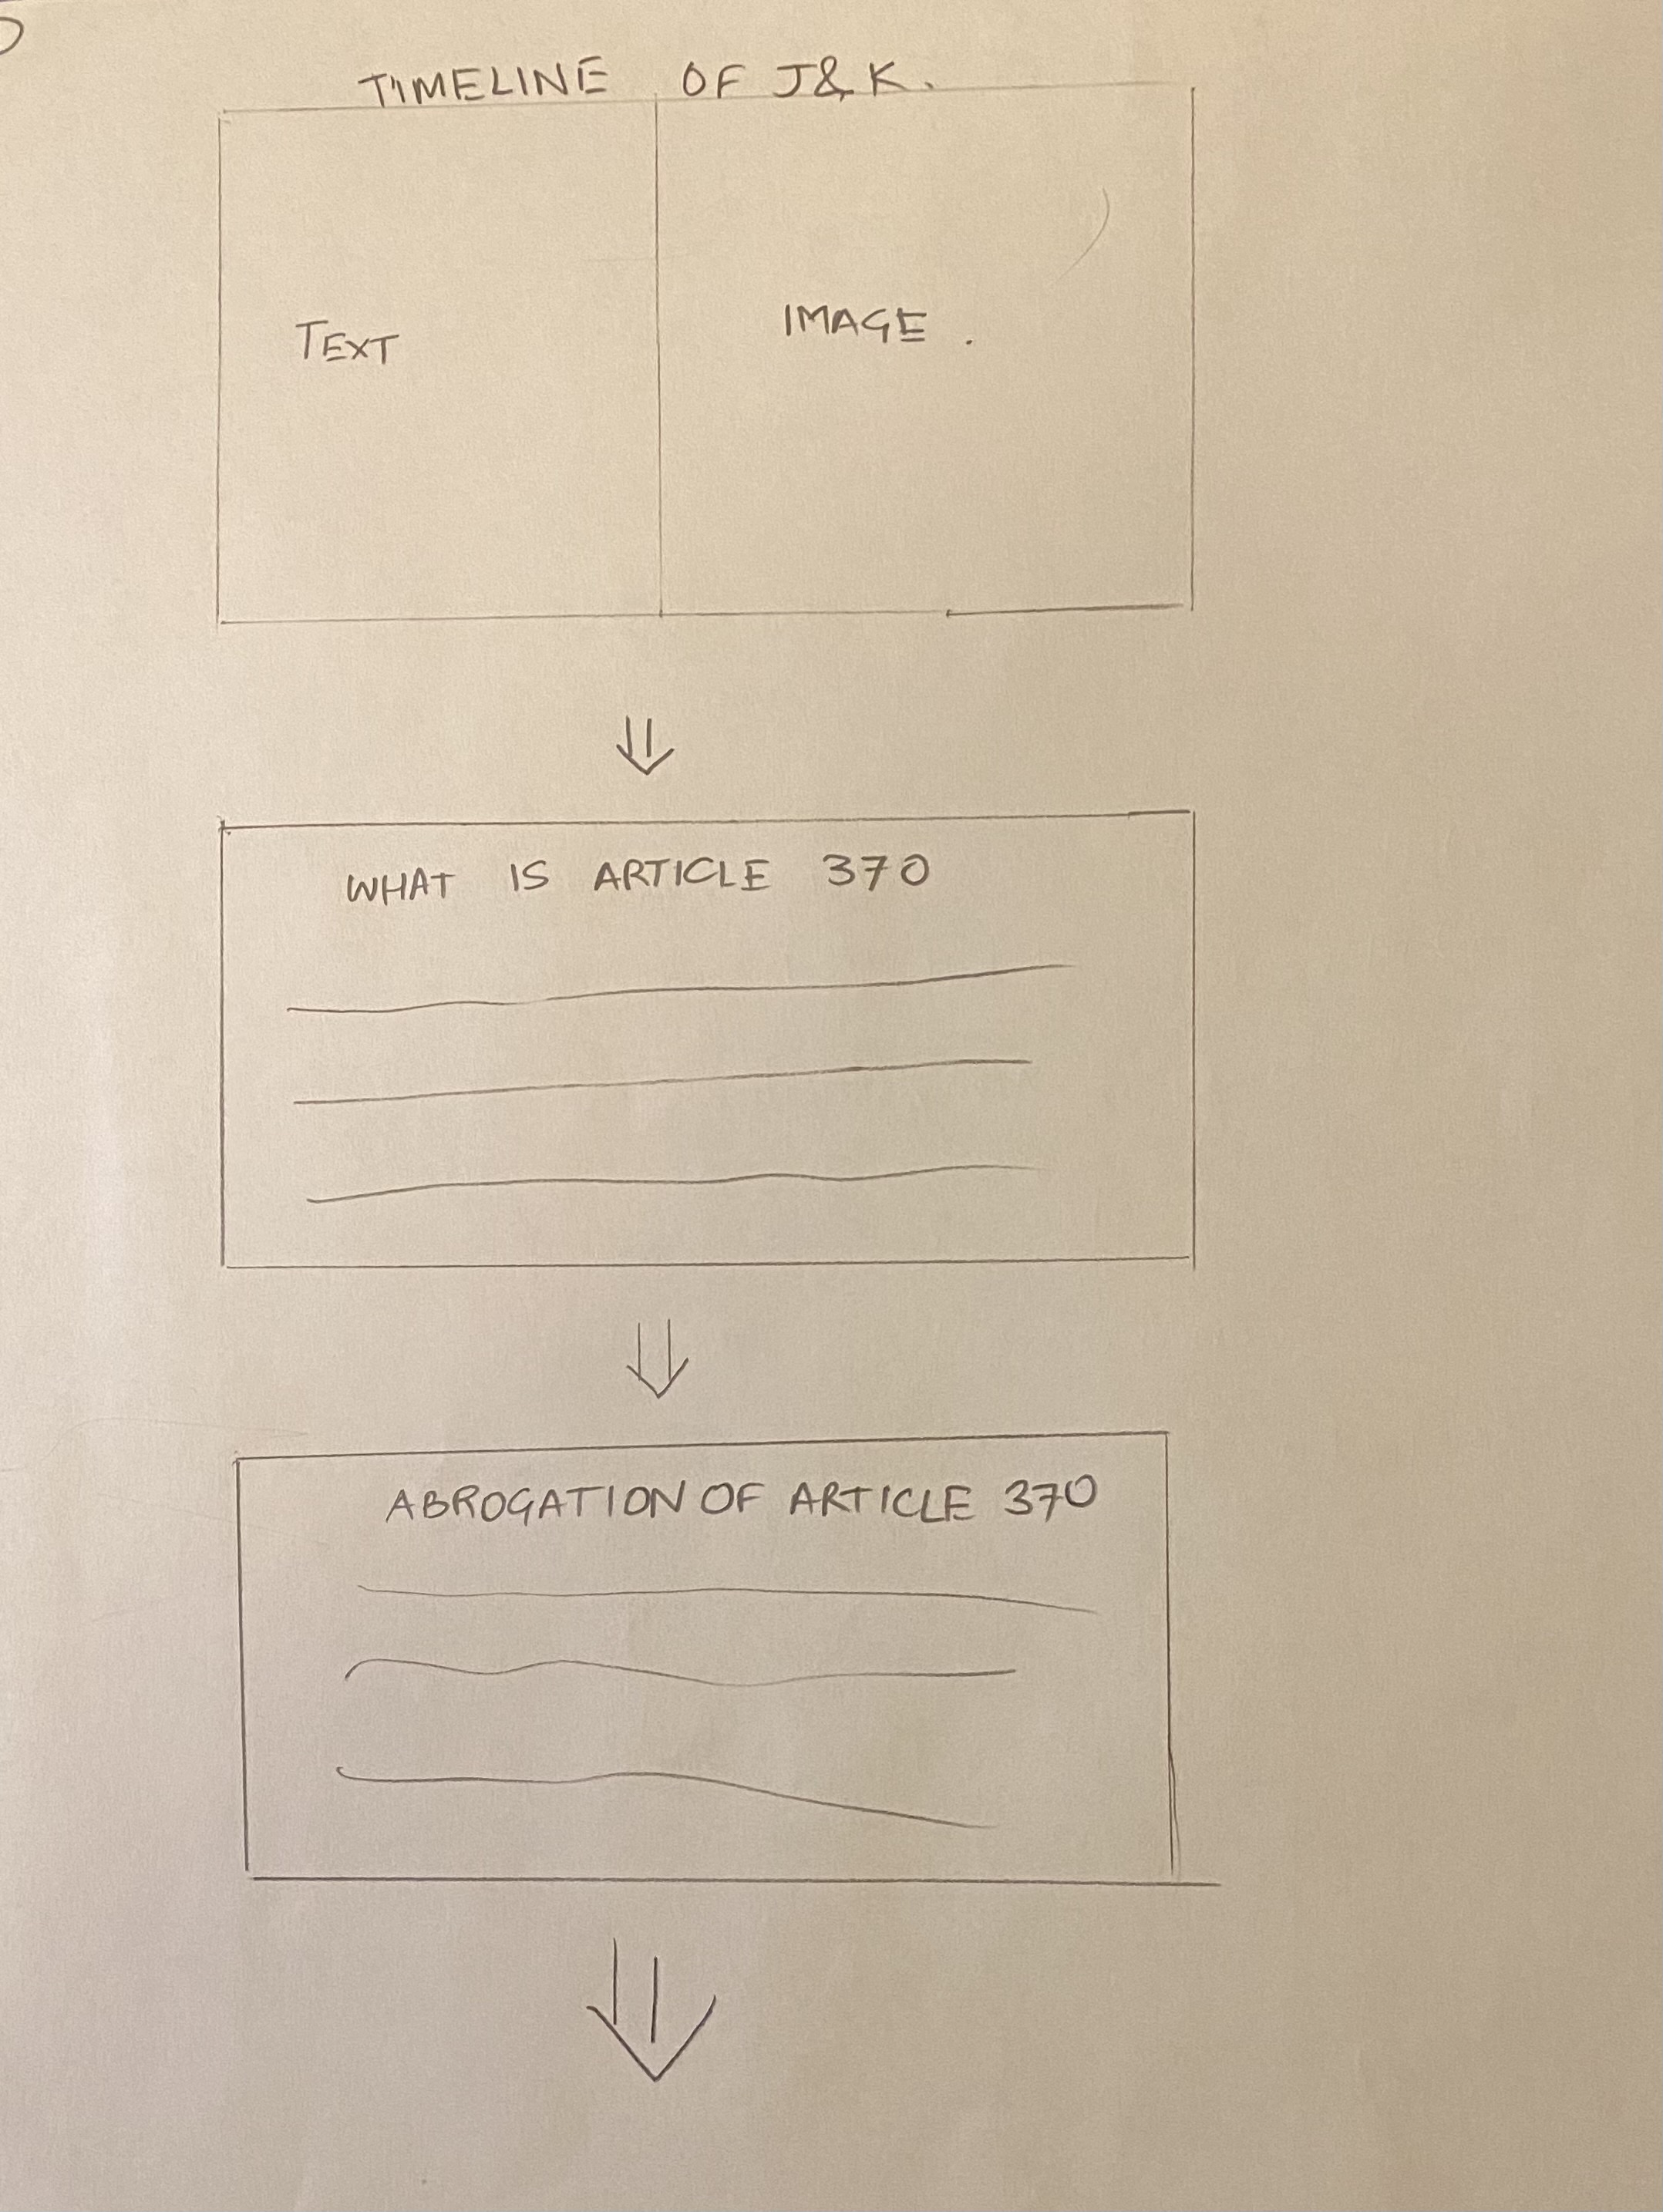 TIMELINE OF J&K.
TEXT
IMAGE.
WHAT IS ARTICLE 370
ABROGATION OF ARTICLE 370